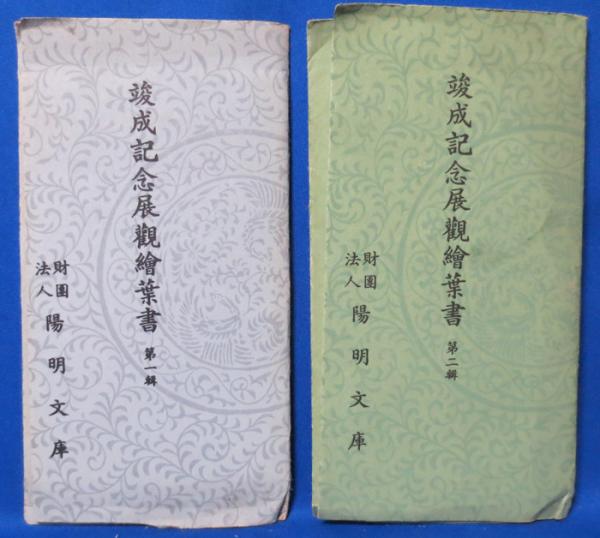 竣成記念展觀繪葉書 第一輯
財團法人 陽明文庫
竣成記念展觀繪葉書 第二輯
財團法人 陽明文庫